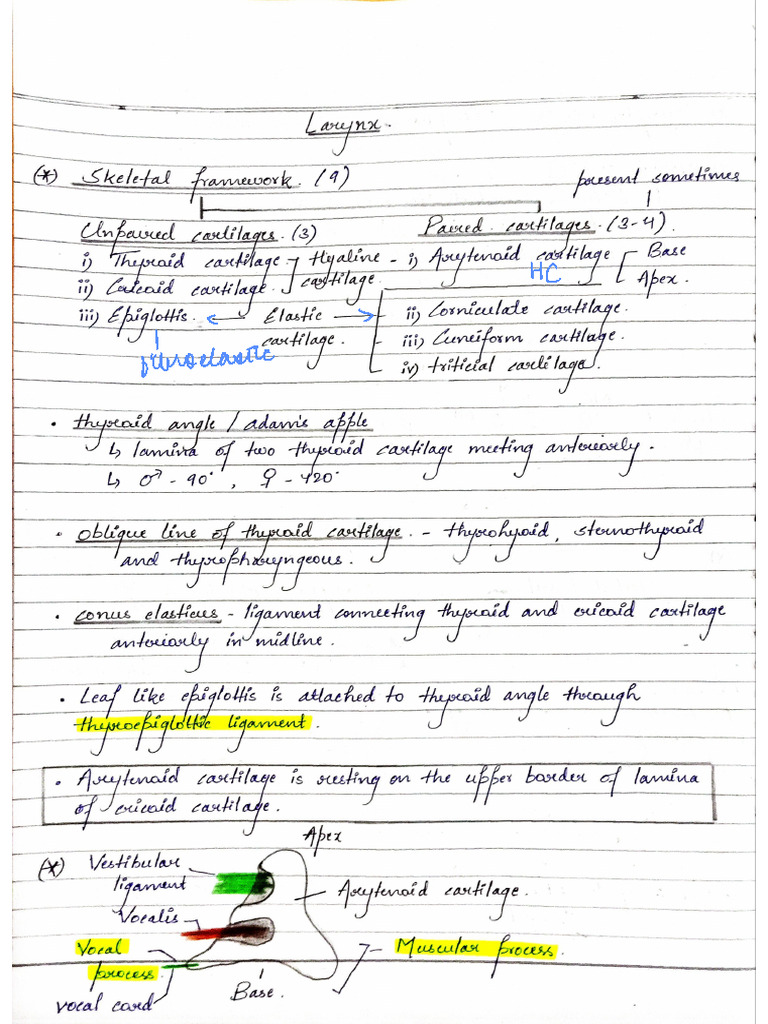 Larynx.
(*) Skeletal framework. (9)
present sometimes
Unpaired cartilages. (3)
Paired cartilages. (3-4).
i) Thyroid cartilage
ii) Cricoid cartilage.
Hyaline cartilage.
iii) Epiglottis.
fibroelastic
Elastic cartilage.
i) Arytenoid cartilage
HC
Base
Apex.
ii) Corniculate cartilage.
iii) Cuneiform cartilage.
iv) triticial cartilage.
• thyroid angle / adam's apple
↳ lamina of two thyroid cartilage meeting anteriorly.
↳ ♂ - 90°, ♀ - 120°
• oblique line of thyroid cartilage. - thyrohyoid, sternothyroid
and thyropharyngeous.
• conus elasticus - ligament connecting thyroid and cricoid cartilage
anteriorly in midline.
• Leaf like epiglottis is attached to thyroid angle through
thyroepiglottic ligament.
• Arytenoid cartilage is resting on the upper border of lamina
of cricoid cartilage.
Apex
(*) Vestibular
ligament
Arytenoid cartilage.
Vocalis
Vocal
process.
Muscular process.
vocal cord
Base.